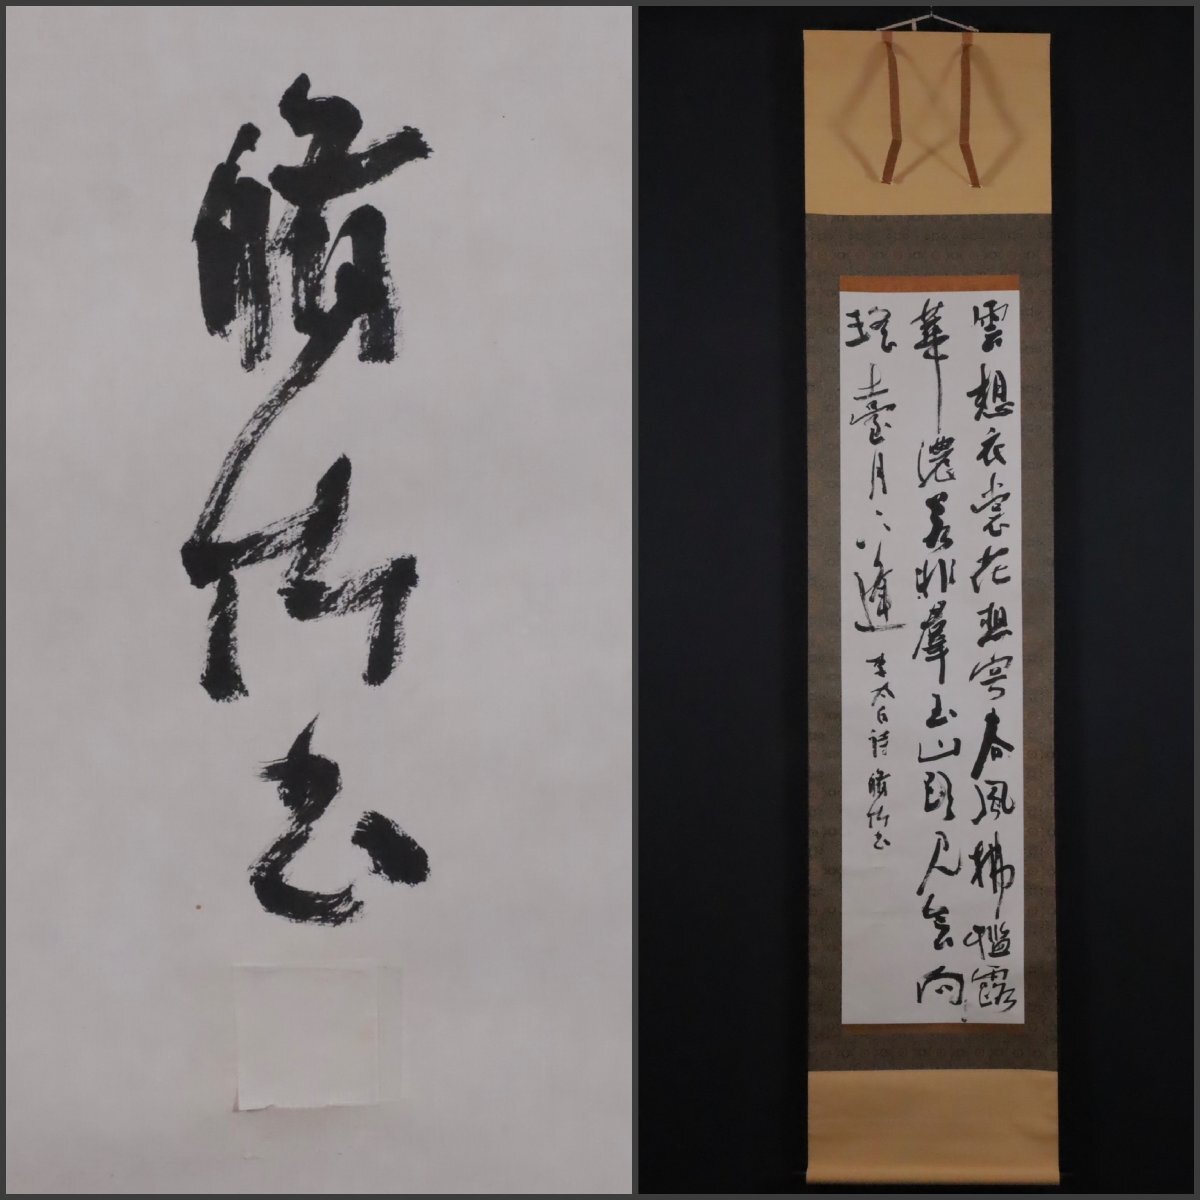 竹書
雲想衣裳花想容春風拂檻露
華濃若非羣玉山頭見會向
瑤臺月下逢 李太白詩 竹書